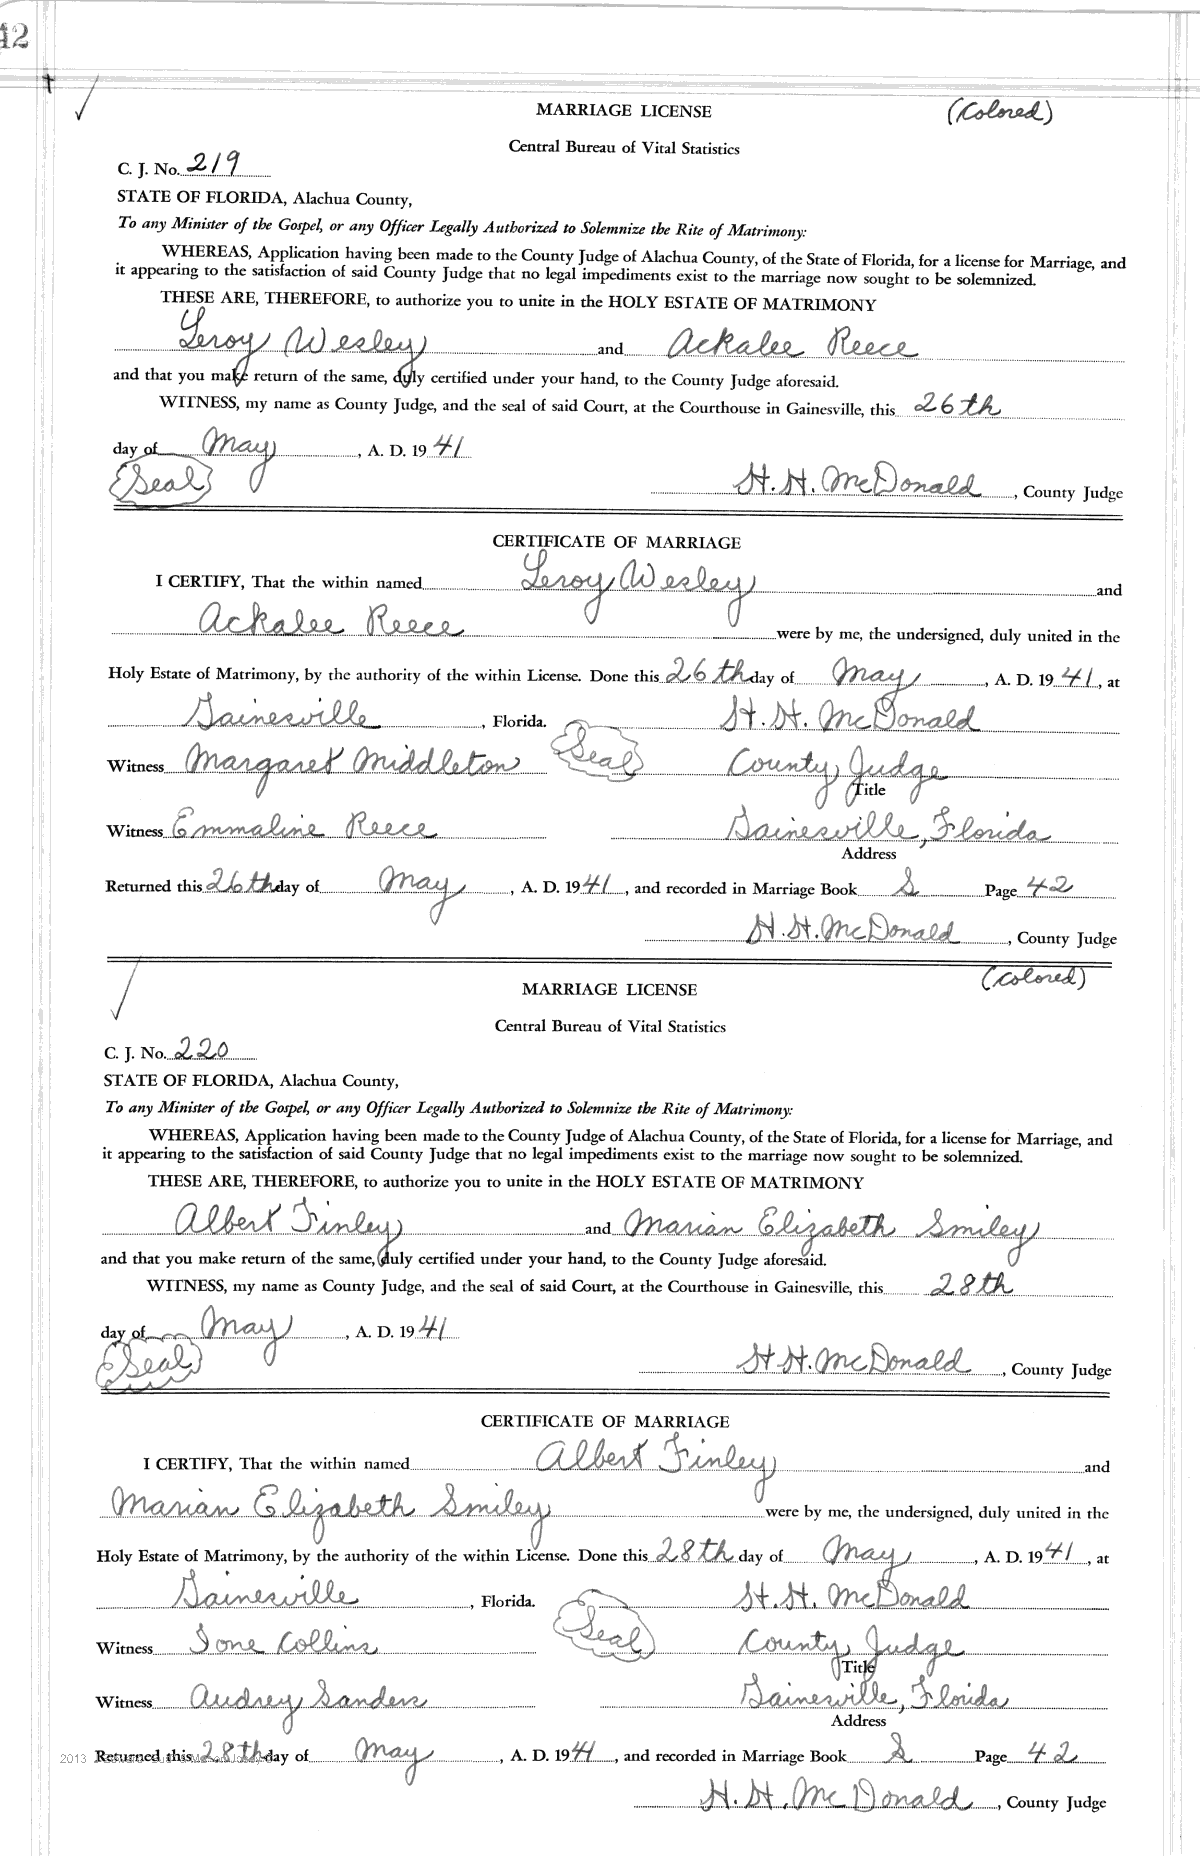 42
MARRIAGE LICENSE (Colored)
Central Bureau of Vital Statistics
C. J. No. 219
STATE OF FLORIDA, Alachua County,
To any Minister of the Gospel, or any Officer Legally Authorized to Solemnize the Rite of Matrimony:
WHEREAS, Application having been made to the County Judge of Alachua County, of the State of Florida, for a license for Marriage, and
it appearing to the satisfaction of said County Judge that no legal impediments exist to the marriage now sought to be solemnized.
THESE ARE, THEREFORE, to authorize you to unite in the HOLY ESTATE OF MATRIMONY
Leroy Wesley and Ackalee Reece
and that you make return of the same, duly certified under your hand, to the County Judge aforesaid.
WITNESS, my name as County Judge, and the seal of said Court, at the Courthouse in Gainesville, this 26th
day of May, A. D. 1941
(Seal) H. H. McDonald, County Judge
CERTIFICATE OF MARRIAGE
I CERTIFY, That the within named Leroy Wesley and
Ackalee Reece were by me, the undersigned, duly united in the
Holy Estate of Matrimony, by the authority of the within License. Done this 26th day of May, A. D. 1941, at
Gainesville, Florida. H. H. McDonald
Witness Margaret Middleton (Seal) County Judge
Title
Witness Emmaline Reece Gainesville, Florida
Address
Returned this 26th day of May, A. D. 1941, and recorded in Marriage Book S Page 42
H. H. McDonald, County Judge
(Colored)
MARRIAGE LICENSE
Central Bureau of Vital Statistics
C. J. No. 220
STATE OF FLORIDA, Alachua County,
To any Minister of the Gospel, or any Officer Legally Authorized to Solemnize the Rite of Matrimony:
WHEREAS, Application having been made to the County Judge of Alachua County, of the State of Florida, for a license for Marriage, and
it appearing to the satisfaction of said County Judge that no legal impediments exist to the marriage now sought to be solemnized.
THESE ARE, THEREFORE, to authorize you to unite in the HOLY ESTATE OF MATRIMONY
Albert Finley and Marian Elizabeth Smiley
and that you make return of the same, duly certified under your hand, to the County Judge aforesaid.
WITNESS, my name as County Judge, and the seal of said Court, at the Courthouse in Gainesville, this 28th
day of May, A. D. 1941
(Seal) H. H. McDonald, County Judge
CERTIFICATE OF MARRIAGE
I CERTIFY, That the within named Albert Finley and
Marian Elizabeth Smiley were by me, the undersigned, duly united in the
Holy Estate of Matrimony, by the authority of the within License. Done this 28th day of May, A. D. 1941, at
Gainesville, Florida. H. H. McDonald
Witness Ione Collins (Seal) County Judge
Title
Witness Audrey Sanders Gainesville, Florida
Address
2013
Returned this 28th day of May, A. D. 1941, and recorded in Marriage Book S Page 42
H. H. McDonald, County Judge